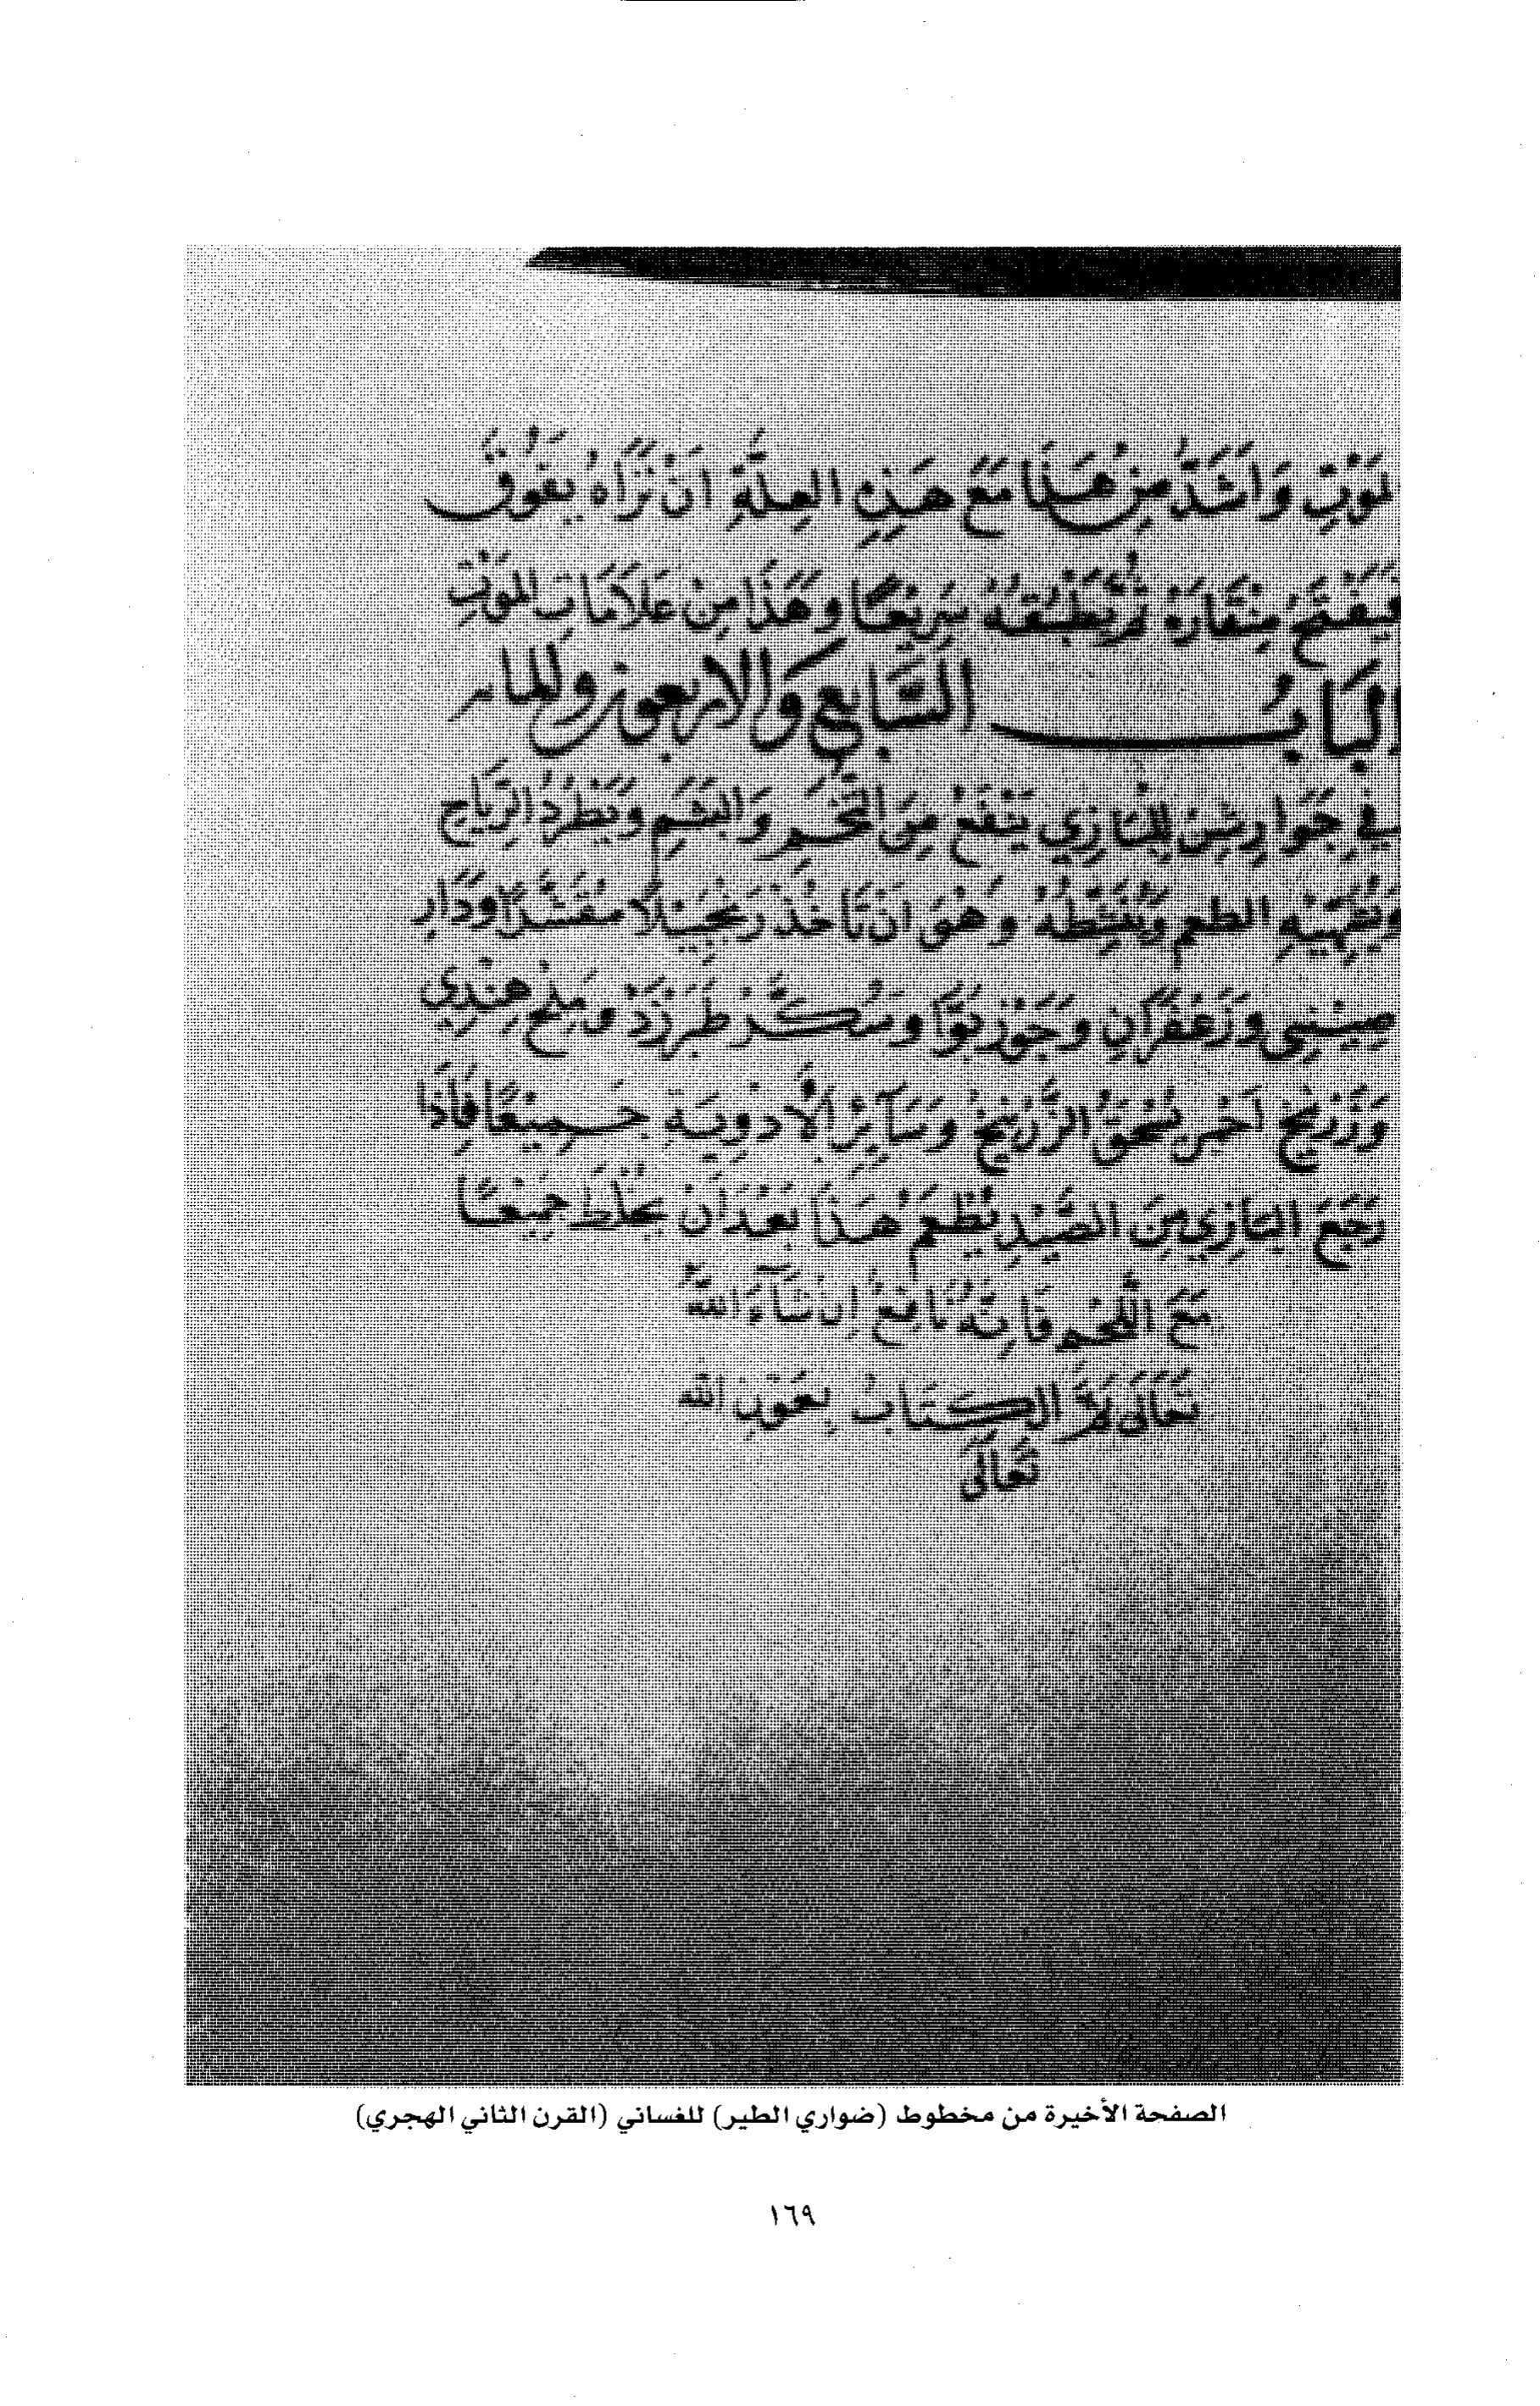 موْتٍ وَاَشَدُّ مِنْ هَذَا مَعَ هَذِهِ العِلَّةِ اَنْ تَرَاهُ يَفُوقُ
فَيَفْتَحُ مِنْقَارَهُ ثُمَّ يُطْبِقُهُ سَرِيْعًا وهَذَا مِنْ عَلاَمَاتِ المَوْتِ
البَابُ السَّابِع وَالاربعون والمايه
في جَوَارِشِنٍ لِلْبَازِي يَنْفَعُ مِنَ التُّخَمِ وَالبَشَمِ وَيَطْرُدُ الرِّيَاحِ
وَيُشَهِّيْهِ الطعم وَيُنَشِّطُهُ وهُوَ اَنْ تَاخُذَ زَنْجَبِيْلاً مُقَشَّرًا وَدَارِ
صِيْنِي وزَعْفَرَانٍ وجَوْزَبَوَّا وسُكَّرْ طَبَرْزَدْ ومِلْحٍ هِنْدِي
وَزَرْنِيْخْ اَحْمَر يُسْحَقُ الزَّرْنِيْخُ وسَآئِرُ الْأَدْوِيَةِ جَمِيْعًا فَاِذَا
رَجَعَ البَازِي مِنَ الصَّيْدِ يُطْعَمُ هَذَا بَعْدَ اَنْ يُخْلَطَ جَمِيْعًا
مَعَ اللَّحْمِ فَاِنَّهُ نَافِعٌ اِن شَآءَ اللهُ
تَعَالَى تَمَّ الكِتَابُ بِعَوْنِ الله
تَعَالَى
الصفحة الأخيرة من مخطوط (ضواري الطير) للغساني (القرن الثاني الهجري)
١٦٩